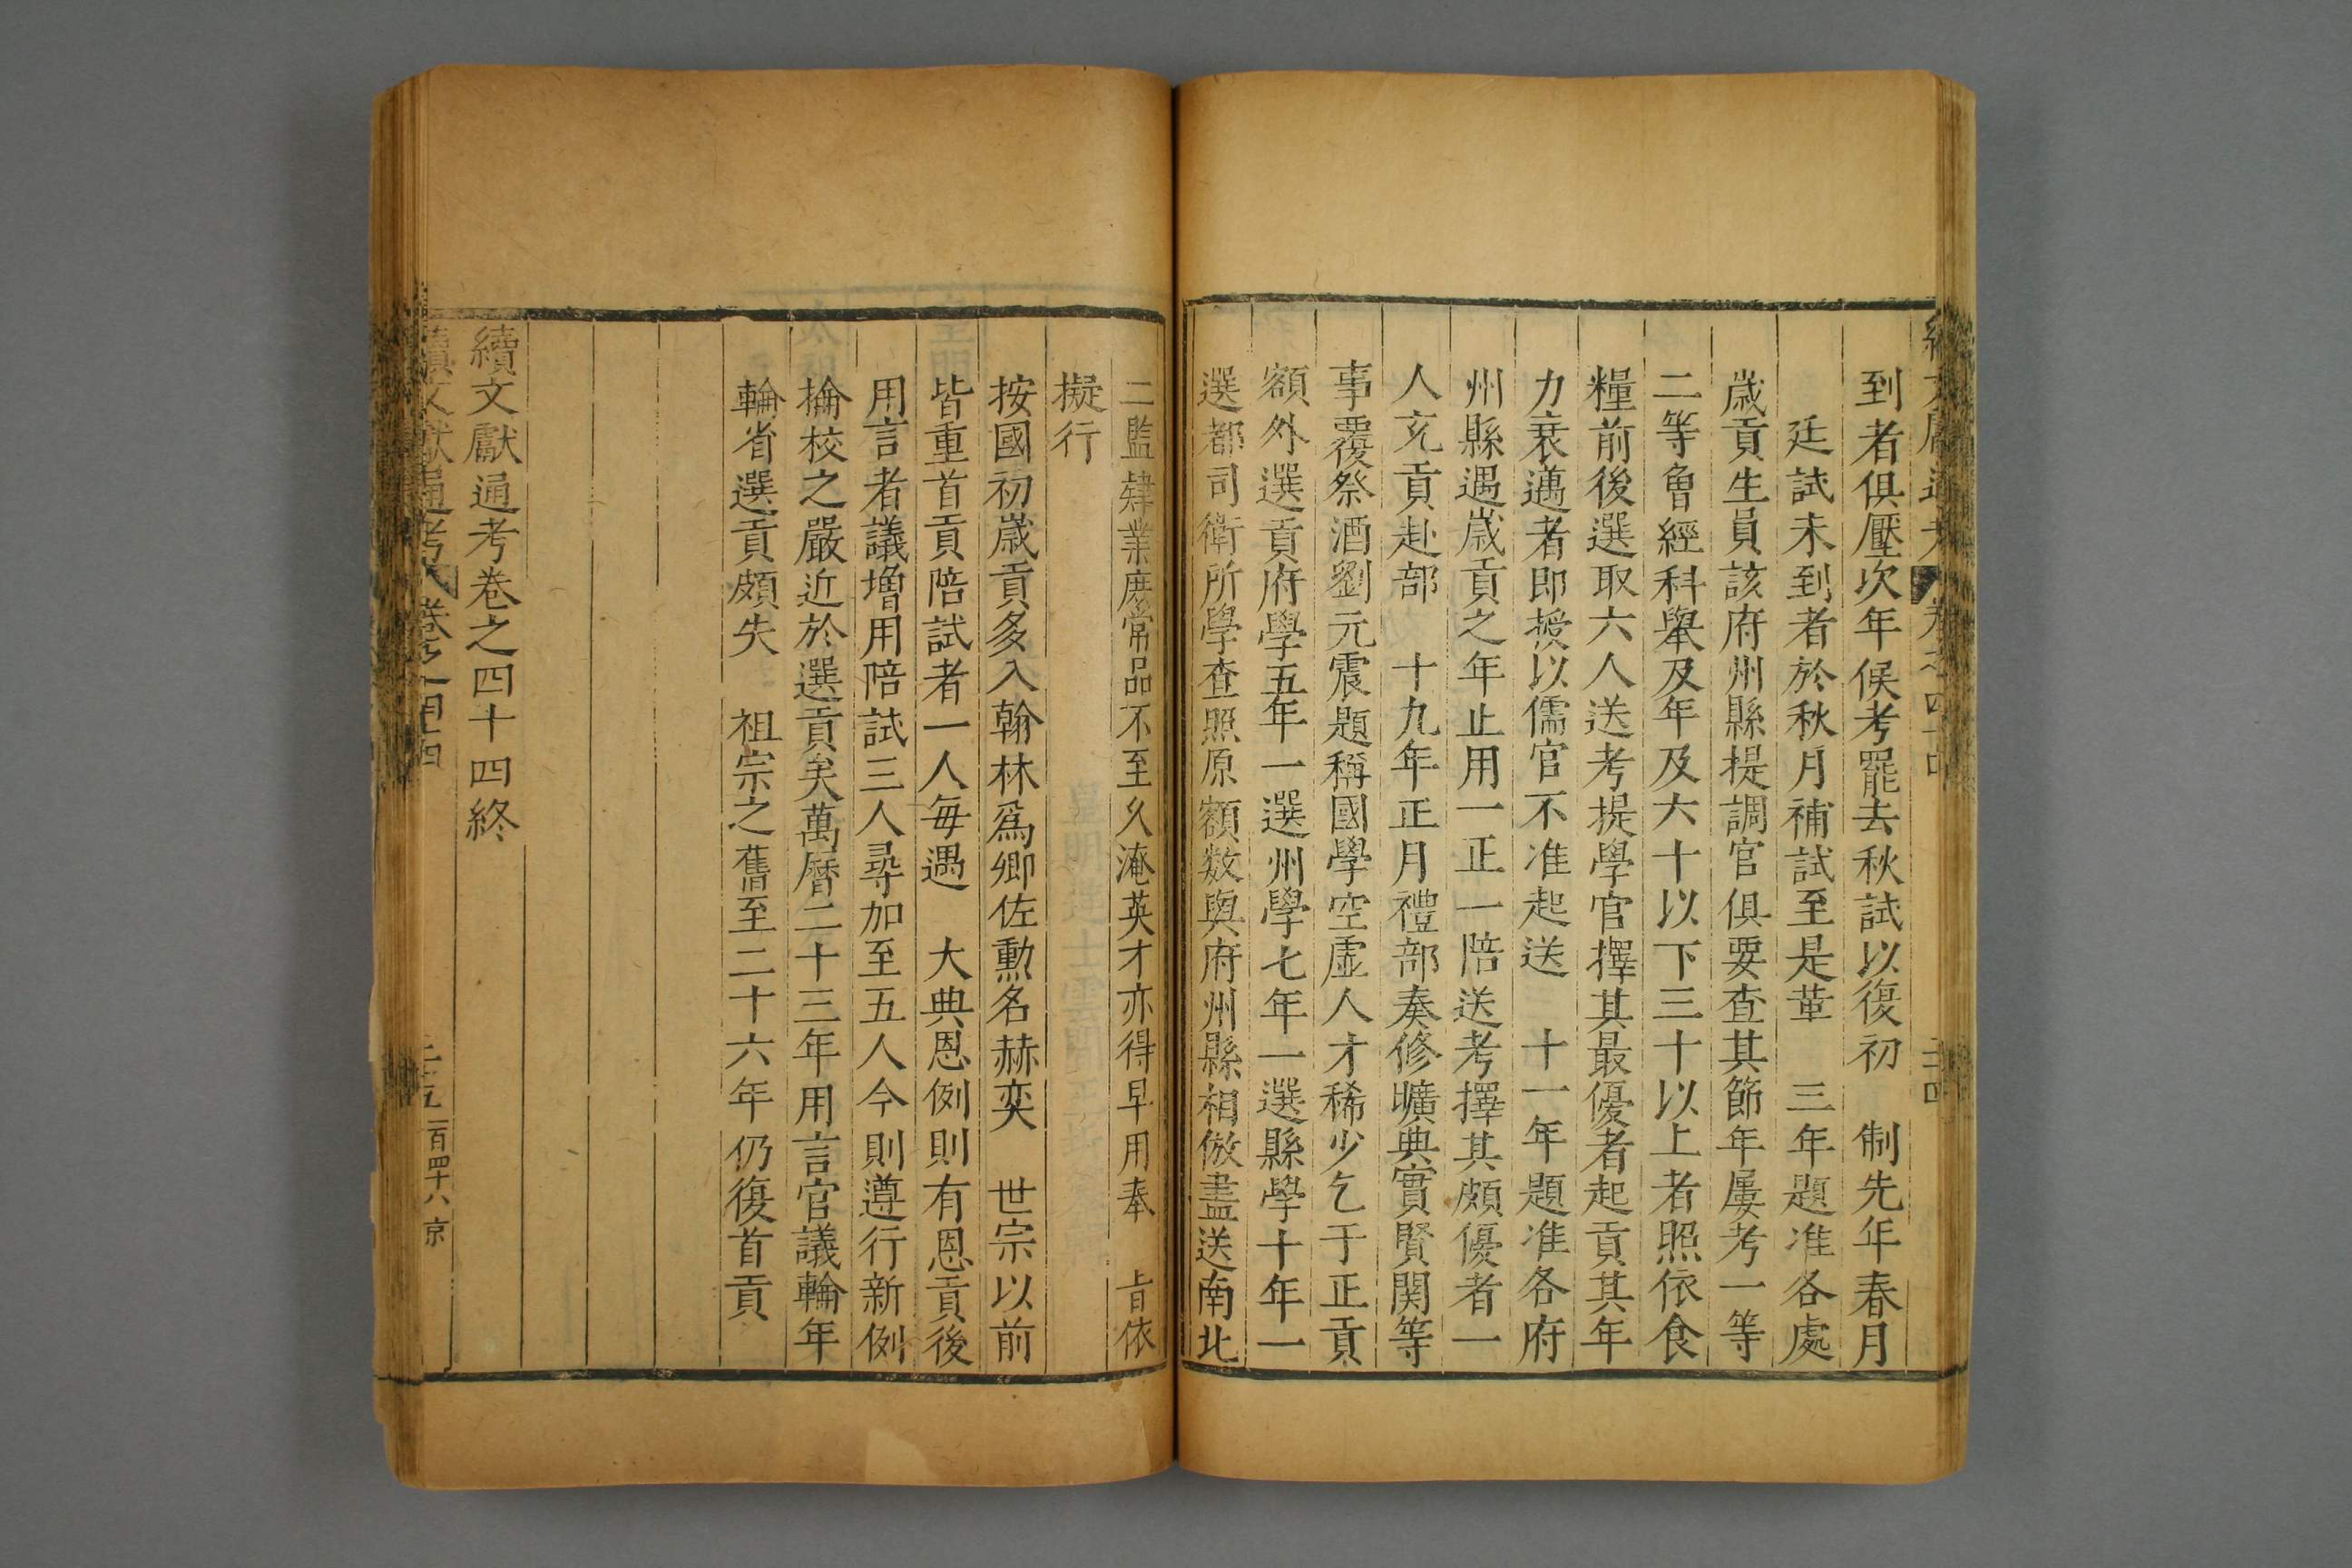 到者俱壓次年候考罷去秋試以復初　制先年春月
廷試未到者於秋月補試至是革　三年題准各處
歲貢生員該府州縣提調官俱要查其節年屢考一等
二等曾經科舉及年及六十以下三十以上者照依食
糧前後選取六人送考提學官擇其最優者起貢其年
力衰邁者即授以儒官不准起送　十一年題准各府
州縣遇歲貢之年止用一正一陪送考擇其頗優者一
人充貢赴部　十九年正月禮部奏修曠典實賢関等
事覆祭酒劉元震題稱國學空虛人才稀少乞于正貢
額外選貢府學五年一選州學七年一選縣學十年一
選都司衛所學查照原額数與府州縣相倣盡送南北
二監肄業庶常品不至久淹英才亦得早用奉　旨依
擬行
按國初歲貢多入翰林爲卿佐勳名赫奕　世宗以前
皆重首貢陪試者一人每遇　大典恩例則有恩貢後
用言者議增用陪試三人尋加至五人今則遵行新例
掄校之嚴近於選貢矣萬曆二十三年用言官議輪年
輪省選貢頗失　祖宗之舊至二十六年仍復首貢
續文獻通考卷之四十四終
續文獻通考　卷之四十四　三十五　一百四十八　京